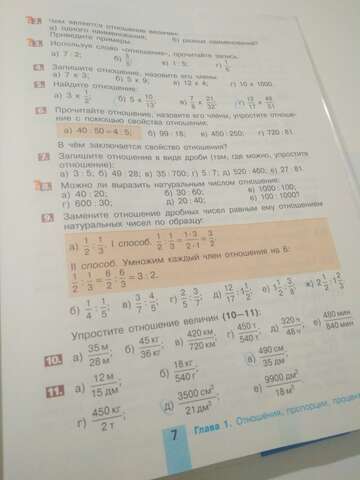 2. Чем является отношение величин:
а) одного наименования; б) разных наименований?
Приведите примеры.
3. Используя слово «отношение», прочитайте запись:
а) 7 : 2; б) 5/8; в) 1 : 5; г) 1/6.
4. Запишите отношение, назовите его члены:
а) 7 к 3; б) 5 к 9; в) 12 к 4; г) 10 к 1000.
5. Найдите отношение:
6. Прочитайте отношение, назовите его члены, упростите отношение
ние с помощью свойства отношения:
а) 40 : 50 = 4 : 5; б) 99 : 18; в) 450 : 250; г) 720 : 81.
В чём заключается свойство отношения?
7. Запишите отношение в виде дроби (там, где можно, упростите
отношение):
а) 3 : 5; б) 49 : 28; в) 35 : 700; г) 5 : 7; д) 520 : 460; е) 27 : 81.
8. Можно ли выразить натуральным числом отношение:
а) 40 : 20; б) 30 : 60; в) 1000 : 100;
г) 600 : 30; д) 20 : 40; е) 100 : 1000?
9. Замените отношение дробных чисел равным ему отношением
натуральных чисел по образцу:
а) 1/2 : 1/3. I способ. 1/2 : 1/3 = 1·3/2·1 = 3/2.
II способ. Умножим каждый член отношения на 6:
1/2 : 1/3 = 6/2 : 6/3 = 3 : 2.
Упростите отношение величин (10–11):
10. а) 35 м/28 м; б) 45 кг/36 кг; в) 420 км/720 км; г) 450 т/540 т; д) 320 ч/48 ч; е) 480 мин/840 мин.
11. а) 12 м/15 дм; б) 18 кг/540 г; в) 490 см/35 дм;
г) 450 кг/2 т; д) 3500 см²/21 дм²; е) 9900 дм²/18 м².
7 Глава 1. Отношения, пропорции, процен